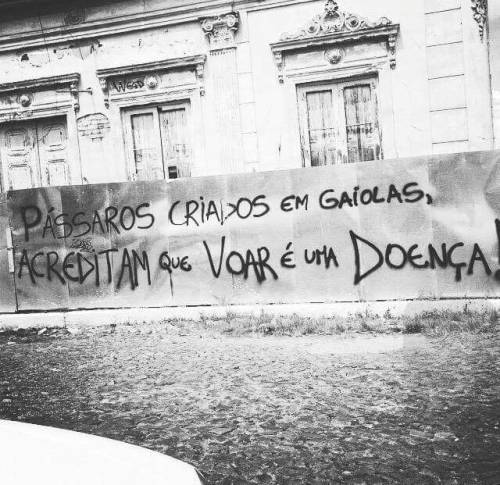 PÁSSAROS CRIADOS EM GAIOLAS,
ACREDITAM QUE VOAR É UMA DOENÇA!